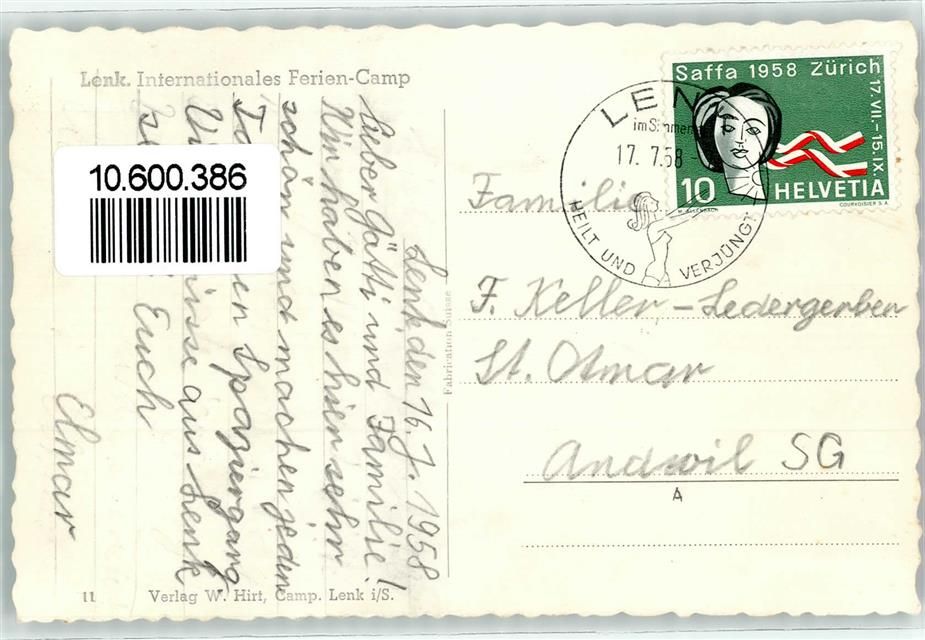 Lenk. Internationales Ferien-Camp
Lenk den 16. 7. 1958
Lieber Götti und Familie!
Wir haben es hier sehr
schön und machen jeden
Spaziergang
aus Lenk
Euch
Elmar
11 Verlag W. Hirt, Camp. Lenk i/S.
Fabrication Suisse
10.600.386
LENK
im Simmen
17. 7.58
HEILT UND VERJÜNGT
Saffa 1958 Zürich
17.VII.–15.IX.
10 HELVETIA
COURVOISIER S.A.
Familie
F. Keller-Ledergerber
St. Otmar
Andwil SG
A